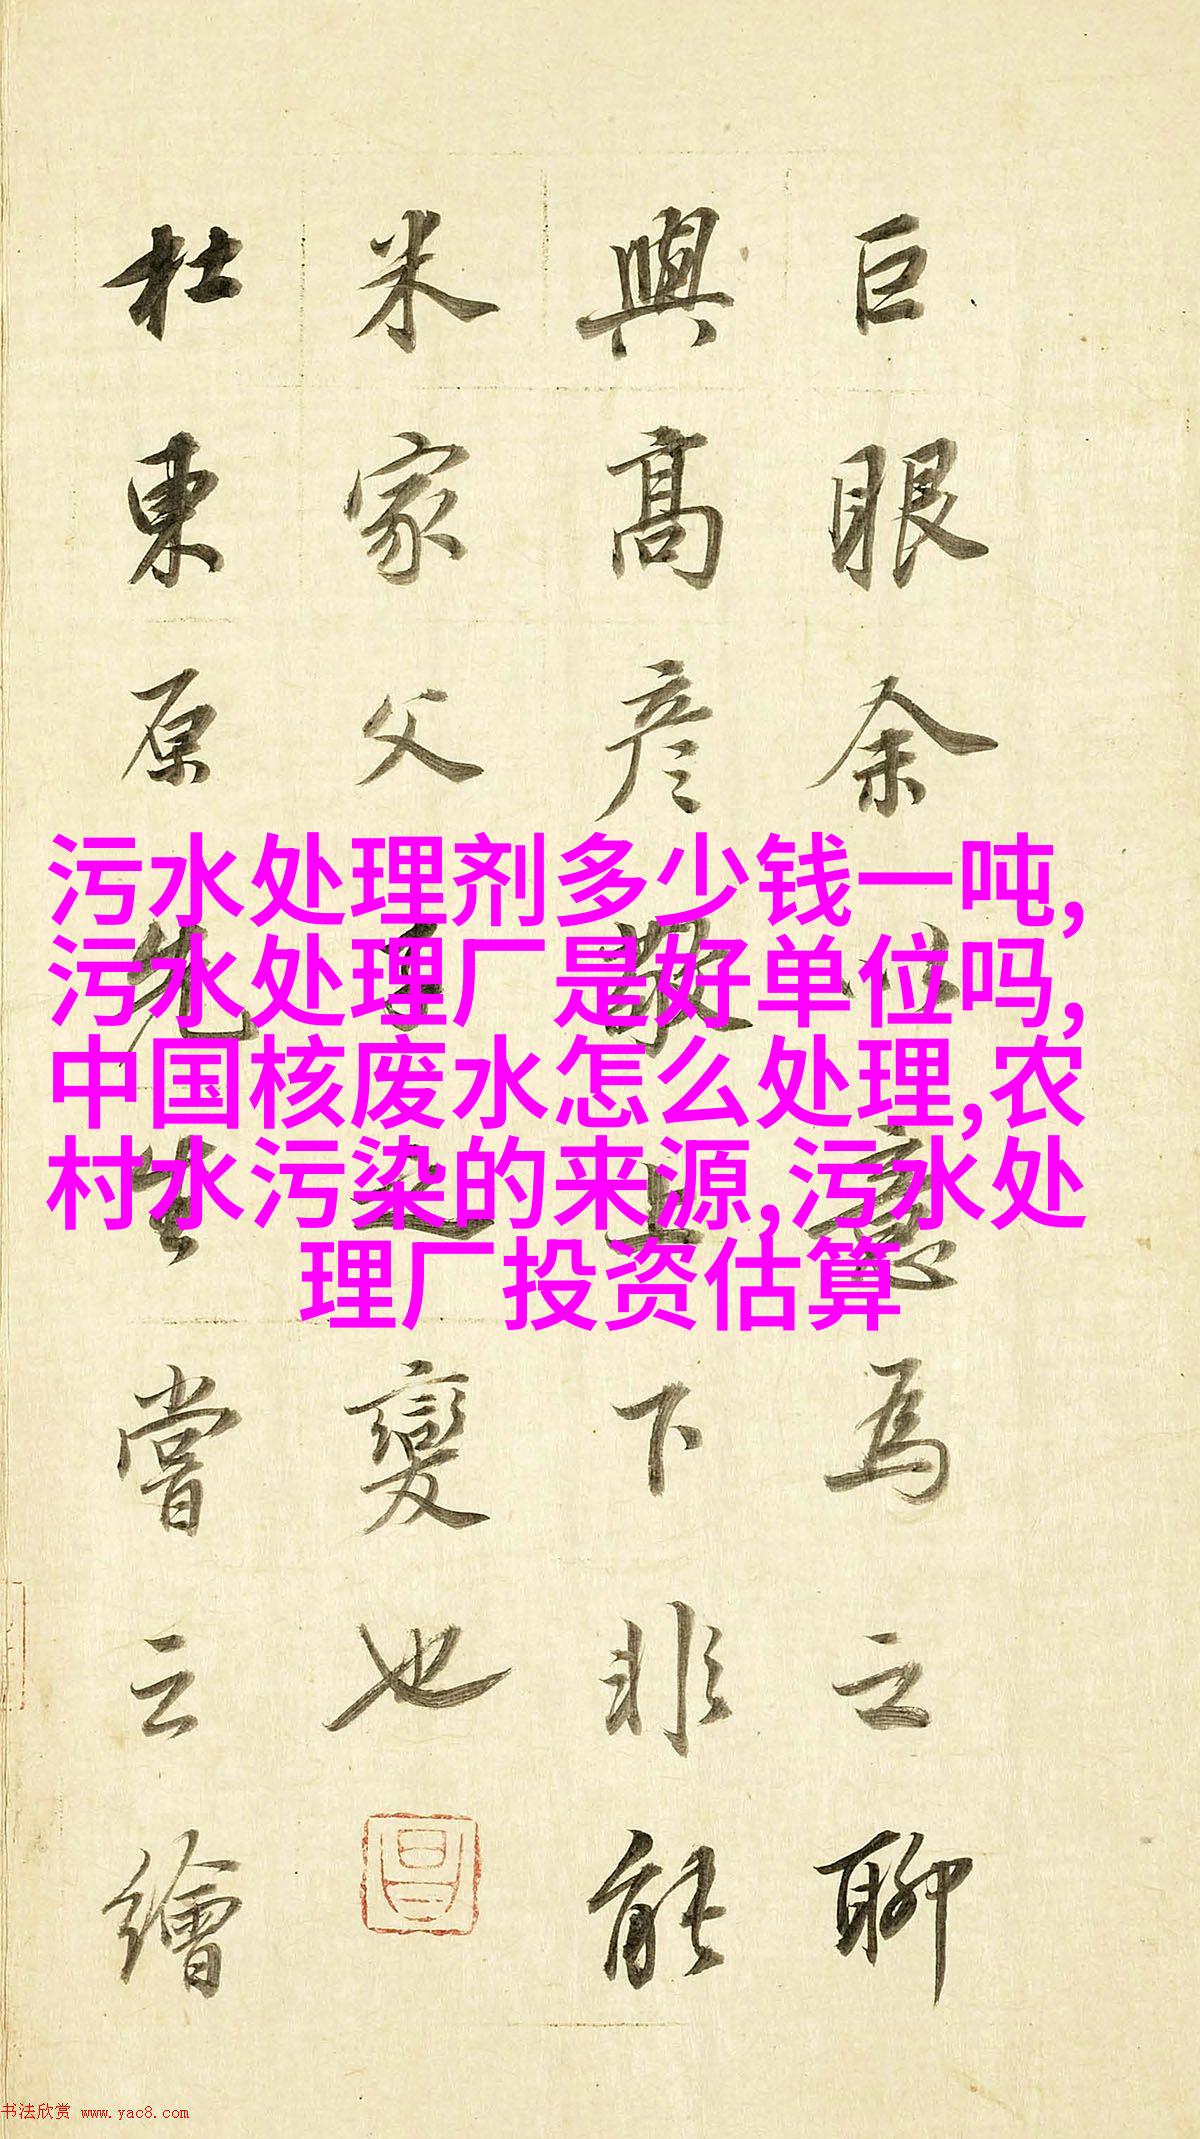 巨眼余以意為之聊
與高彥敬上下非能
米家父子之變也
杜東原先生嘗云繪
污水处理剂多少钱一吨,
污水处理厂是好单位吗,
中国核废水怎么处理,农
村水污染的来源,污水处
理厂投资估算
书法欣赏 www.yac8.com